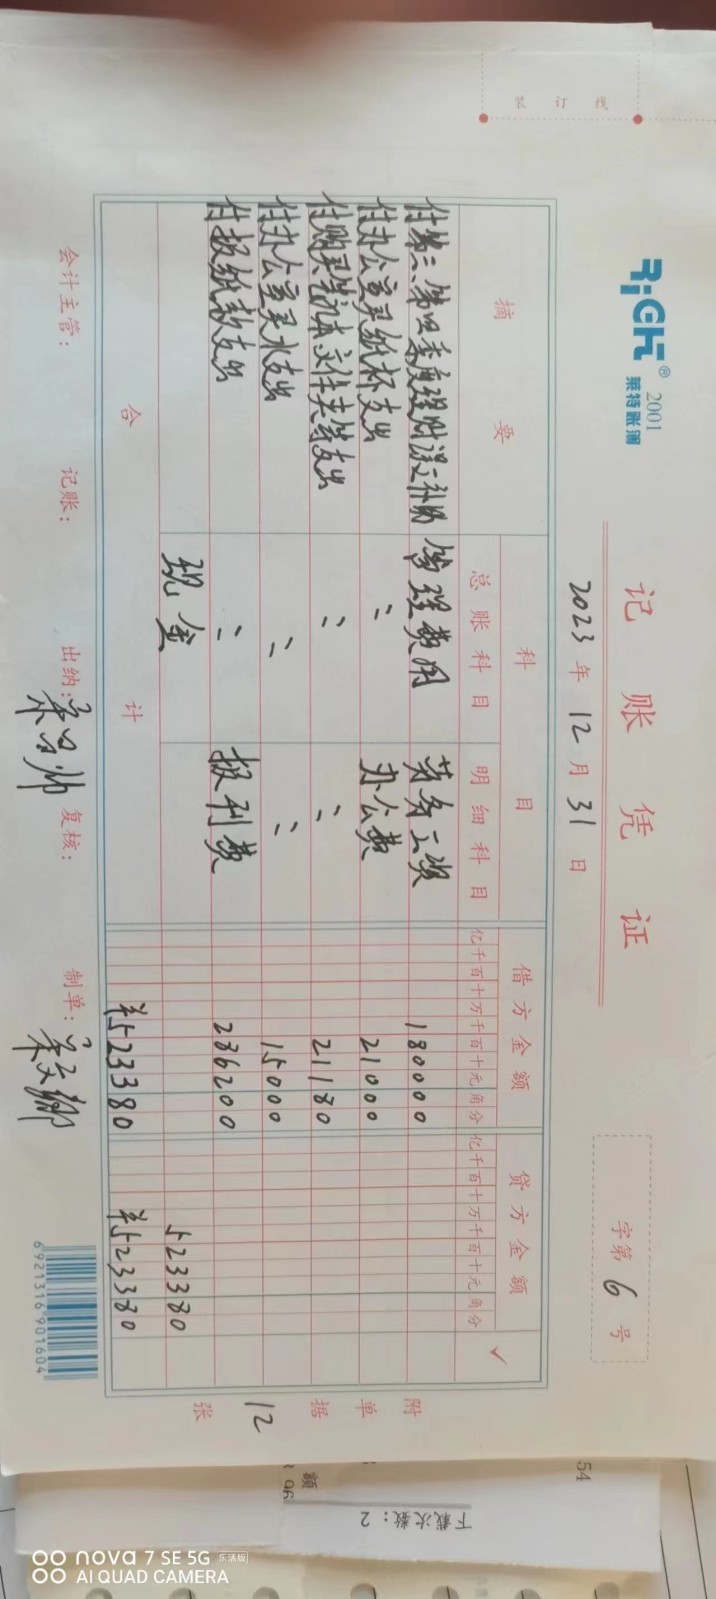 装 订 线
RiCH® 2001
莱特账簿
记 账 凭 证
2023 年 12 月 31 日
字第 6 号
摘 要
科 目
总 账 科 目
明 细 科 目
借 方 金 额
亿千百十万千百十元角分
贷 方 金 额
亿千百十万千百十元角分
✓
付第三、第四季度理财误工补助 管理费用 劳务工资 180000
付办公室买纸杯支出 〃 办公费 21000
付购买笔记本文件夹等支出 〃 〃 21180
付办公室买水支出 〃 〃 15000
付报纸款支出 〃 报刊费 286200
现金 523380
合 计 ¥523380 ¥523380
附 单 据 12 张
会计主管: 记账: 出纳: 复核: 制单:
6921316901604
54
额
下载次数:2
nova 7 SE 5G 乐活版
AI QUAD CAMERA